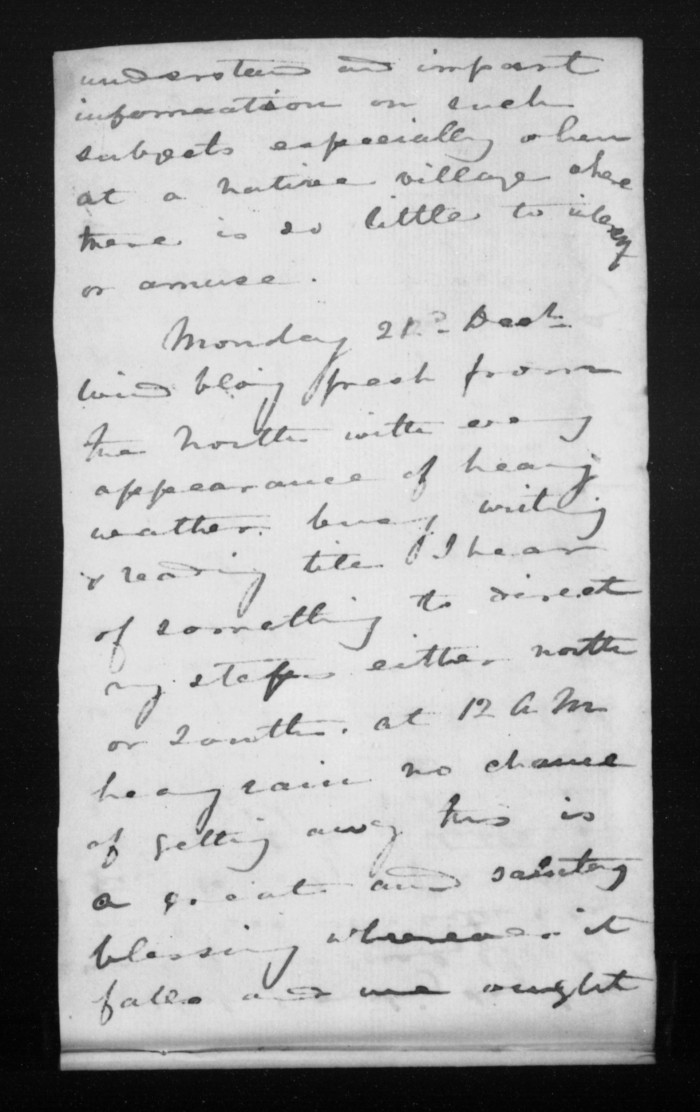 understand and impart
information on such
subjects especially when
at a native village where
there is so little to
or amuse.
Monday 21st Decb
wind blowing fresh from
the North with every
appearance of heavy
weather. busy writing
& reading till I hear
of something to direct
my steps either north
or South. at 12 A M
heavy rain no chance
of getting away this is
a great and
blessing whenever it
falls and we ought